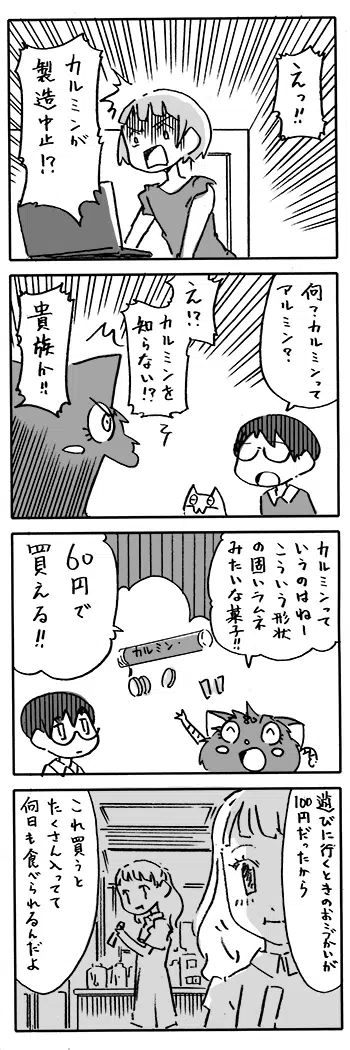 えっ!!
カルミンが
製造中止!?
何?カルミンって
アルミン?
え!?
カルミンを
知らない!?
貴族か!!
カルミンって
いうのはねー
こういう形状
の固いラムネ
みたいな菓子!!
カルミン・
60円で
買える!!
遊びに行くときのおこづかいが
100円だったから
これ買うと
たくさん入ってて
何日も食べられるんだよ